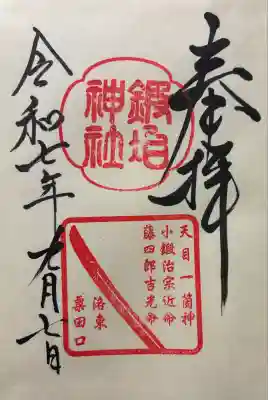 奉拝
鍛冶
神社
天目一箇神
小鍛治宗近命
藤四郎吉光命
洛東
粟田口
令和七年 月七日